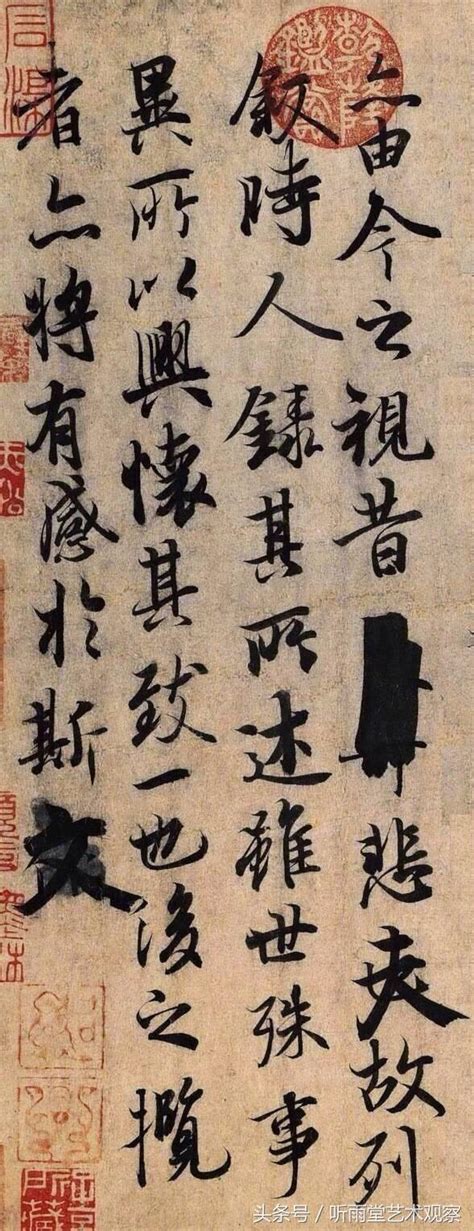 亦由今之視昔悲夫故列
敘時人錄其所述雖世殊事
異所以興懷其致一也後之攬
者亦將有感於斯文
乾隆鑑賞
头条号 / 听雨堂艺术观察